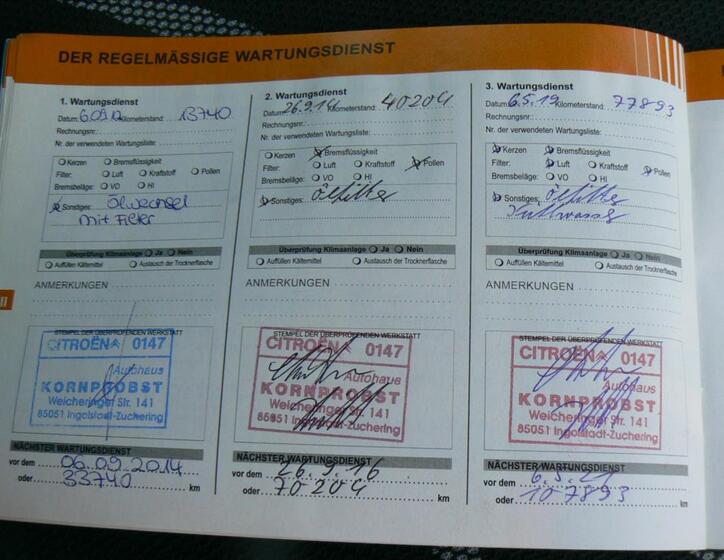 DER REGELMÄSSIGE WARTUNGSDIENST
1. Wartungsdienst
Datum: 6.09.12 Kilometerstand: 13740
Rechnungsnr.:
Nr. der verwendeten Wartungsliste:
Kerzen Bremsflüssigkeit
Filter: Luft Kraftstoff Pollen
Bremsbeläge: VO HI
Sonstiges: Ölwechsel
mit Filter
Überprüfung Klimaanlage Ja Nein
Auffüllen Kältemittel Austausch der Trocknerflasche
ANMERKUNGEN
STEMPEL DER ÜBERPRÜFENDEN WERKSTATT
CITROËN 0147
Autohaus
KORNPROBST
Weicheringer Str. 141
85051 Ingolstadt-Zuchering
NÄCHSTER WARTUNGSDIENST
vor dem 06.09.2014
oder 33740 km
2. Wartungsdienst
Datum: 26.9.14 Kilometerstand: 40204
Rechnungsnr.:
Nr. der verwendeten Wartungsliste:
Kerzen Bremsflüssigkeit
Filter: Luft Kraftstoff Pollen
Bremsbeläge: VO HI
Sonstiges: Ölfilter
Überprüfung Klimaanlage Ja Nein
Auffüllen Kältemittel Austausch der Trocknerflasche
ANMERKUNGEN
STEMPEL DER ÜBERPRÜFENDEN WERKSTATT
CITROËN 0147
Autohaus
KORNPROBST
Weicheringer Str. 141
85051 Ingolstadt-Zuchering
NÄCHSTER WARTUNGSDIENST
vor dem 26.9.16
oder 70204 km
3. Wartungsdienst
Datum: 6.5.19 Kilometerstand: 77893
Rechnungsnr.:
Nr. der verwendeten Wartungsliste:
Kerzen Bremsflüssigkeit
Filter: Luft Kraftstoff Pollen
Bremsbeläge: VO HI
Sonstiges: Ölfilter
Überprüfung Klimaanlage Ja Nein
Auffüllen Kältemittel Austausch der Trocknerflasche
ANMERKUNGEN
STEMPEL DER ÜBERPRÜFENDEN WERKSTATT
CITROËN 0147
Autohaus
KORNPROBST
Weicheringer Str. 141
85051 Ingolstadt-Zuchering
NÄCHSTER WARTUNGSDIENST
vor dem 6.5.21
oder 107893 km